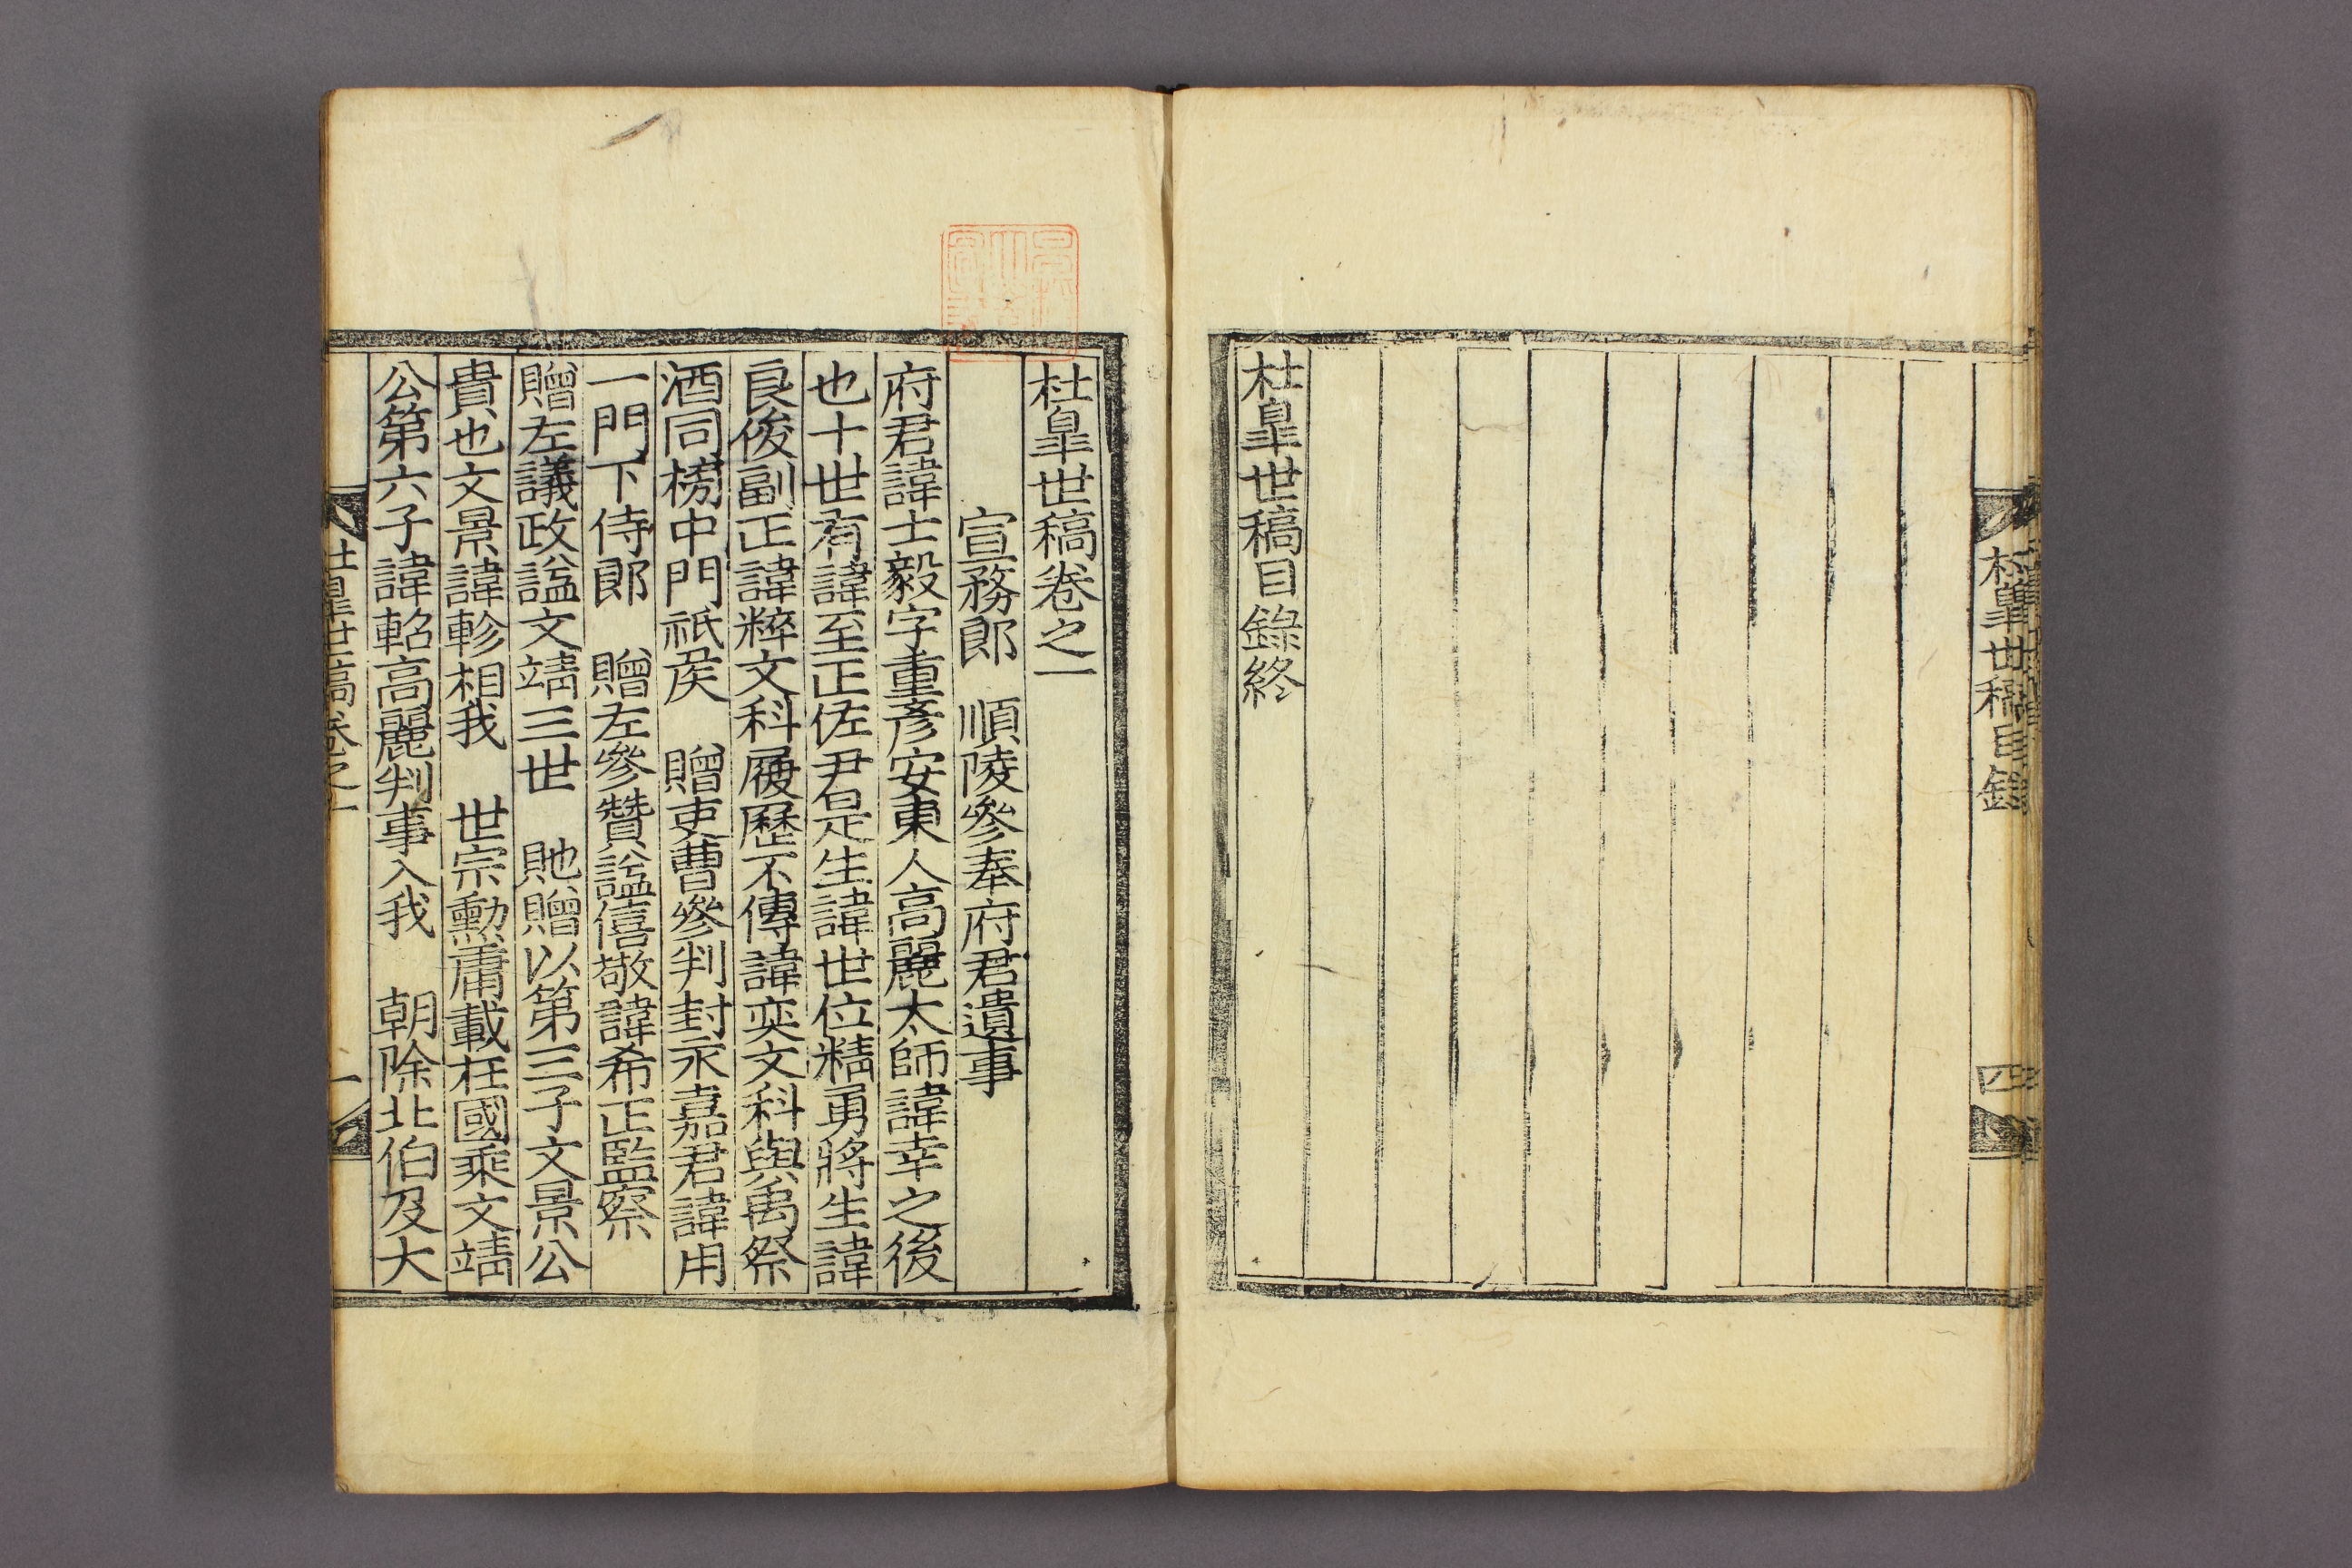 杜臯世稿目錄
四
杜臯世稿目錄終
杜臯世稿卷之一
宣務郎 順陵參奉府君遺事
府君諱士毅字重彥安東人高麗太師諱幸之後
也十世有諱至正佐尹是生諱世位精勇將生諱
良俊副正諱粹文科履歷不傳諱奕文科與禹祭
酒同榜中門祗侯 贈吏曹參判封永嘉君諱用
一門下侍郎 贈左參贊諡僖敬諱希正監察
贈左議政諡文靖三世 貤贈以第三子文景公
貴也文景諱軫相我 世宗勳庸載在國乘文靖
公第六子諱軺高麗判事入我 朝除北伯及大
杜臯世稿卷之一
一